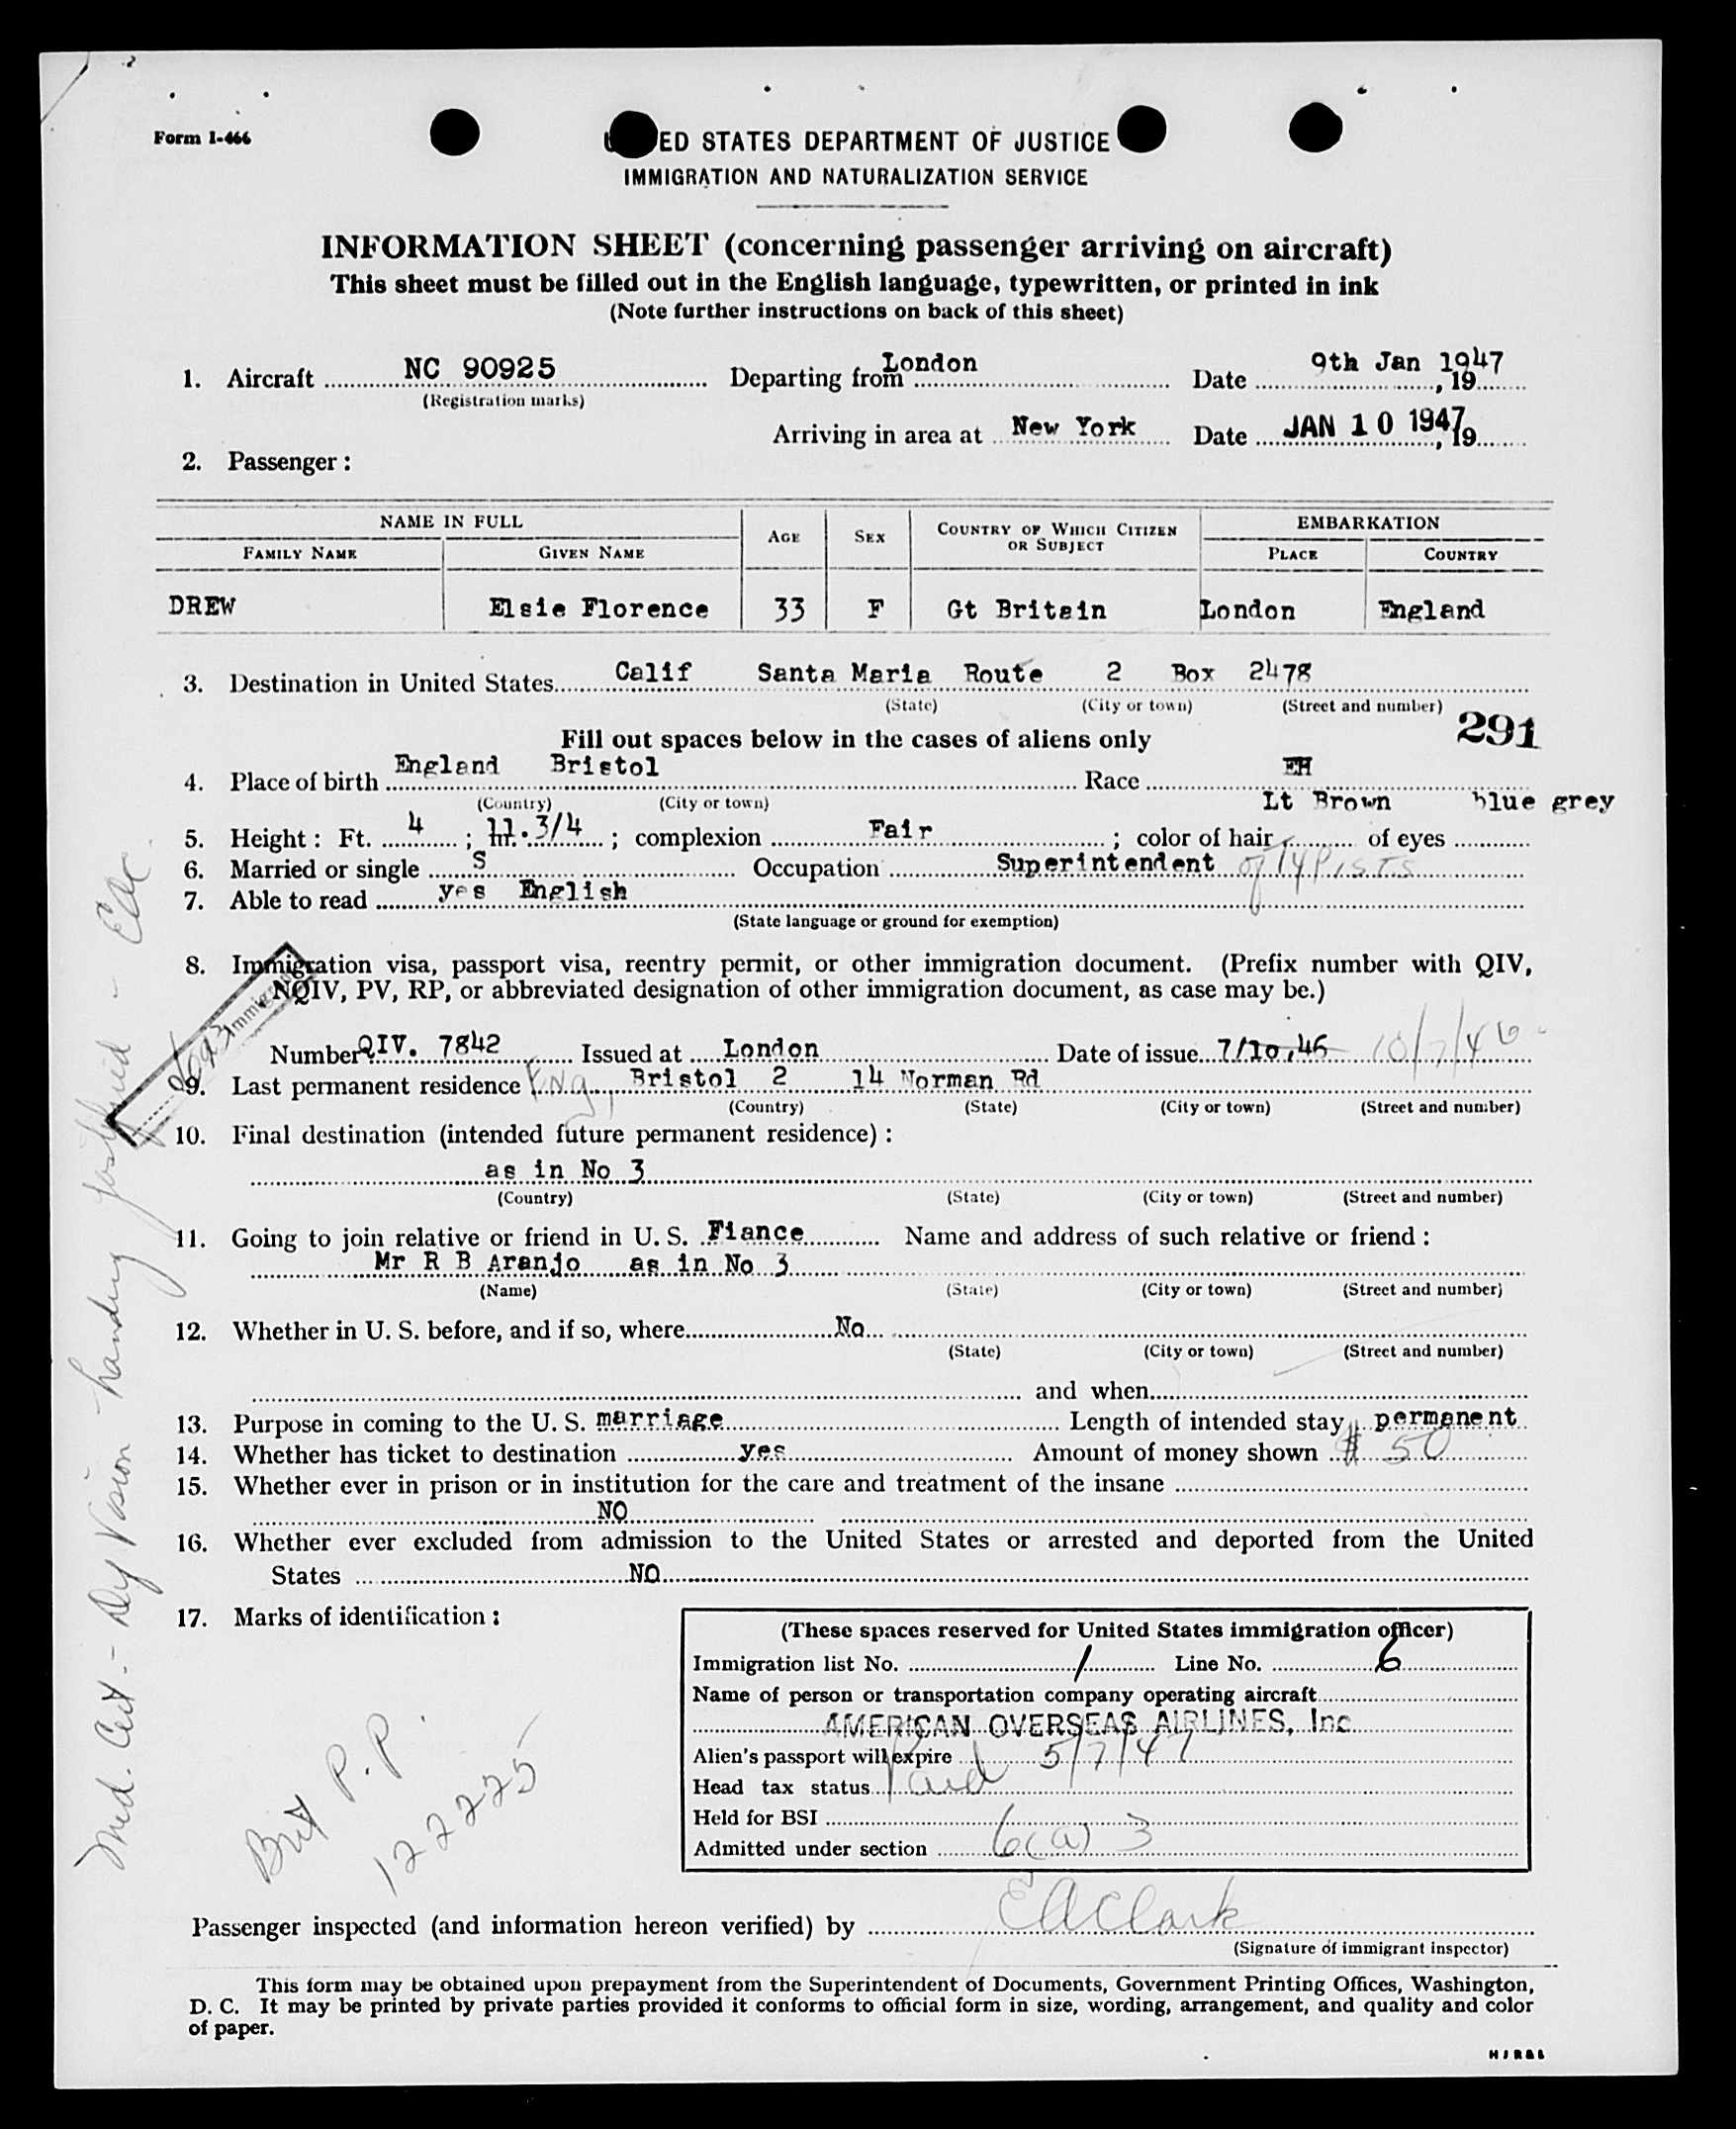 Form I-466
ED STATES DEPARTMENT OF JUSTICE
IMMIGRATION AND NATURALIZATION SERVICE
INFORMATION SHEET (concerning passenger arriving on aircraft)
This sheet must be filled out in the English language, typewritten, or printed in ink
(Note further instructions on back of this sheet)
1. Aircraft NC 90925 Departing from London Date 9th Jan 1947, 19
(Registration marks)
Arriving in area at New York Date JAN 10 1947, 19
2. Passenger:
NAME IN FULL AGE SEX COUNTRY OF WHICH CITIZEN OR SUBJECT EMBARKATION
FAMILY NAME GIVEN NAME PLACE COUNTRY
DREW Elsie Florence 33 F Gt Britain London England
3. Destination in United States Calif Santa Maria Route 2 Box 2478
(State) (City or town) (Street and number)
291
Fill out spaces below in the cases of aliens only
4. Place of birth England Bristol Race EH
(Country) (City or town)
5. Height: Ft. 4; In. 11.3/4; complexion Fair; color of hair Lt Brown of eyes blue grey
6. Married or single S Occupation Superintendent of TYPISTS
7. Able to read yes English
(State language or ground for exemption)
8. Immigration visa, passport visa, reentry permit, or other immigration document. (Prefix number with QIV,
NQIV, PV, RP, or abbreviated designation of other immigration document, as case may be.)
Number QIV. 7842 Issued at London Date of issue 7/10,46 10/7/46
9. Last permanent residence Eng, Bristol 2 14 Norman Rd
(Country) (State) (City or town) (Street and number)
10. Final destination (intended future permanent residence):
as in No 3
(Country) (State) (City or town) (Street and number)
11. Going to join relative or friend in U. S. Fiance Name and address of such relative or friend:
Mr R B Aranjo as in No 3
(Name) (State) (City or town) (Street and number)
12. Whether in U. S. before, and if so, where No
(State) (City or town) (Street and number)
and when
13. Purpose in coming to the U. S. marriage Length of intended stay permanent
14. Whether has ticket to destination yes Amount of money shown $ 50
15. Whether ever in prison or in institution for the care and treatment of the insane
NO
16. Whether ever excluded from admission to the United States or arrested and deported from the United
States NO
17. Marks of identification:
Brit P.P.
122225
(These spaces reserved for United States immigration officer)
Immigration list No. 1 Line No. 6
Name of person or transportation company operating aircraft
AMERICAN OVERSEAS AIRLINES, Inc
Alien's passport will expire 5/7/47
Head tax status Paid
Held for BSI
Admitted under section 6(a) 3
Passenger inspected (and information hereon verified) by EAClark
(Signature of immigrant inspector)
This form may be obtained upon prepayment from the Superintendent of Documents, Government Printing Offices, Washington,
D. C. It may be printed by private parties provided it conforms to official form in size, wording, arrangement, and quality and color
of paper.
Med. Cert. - Vision